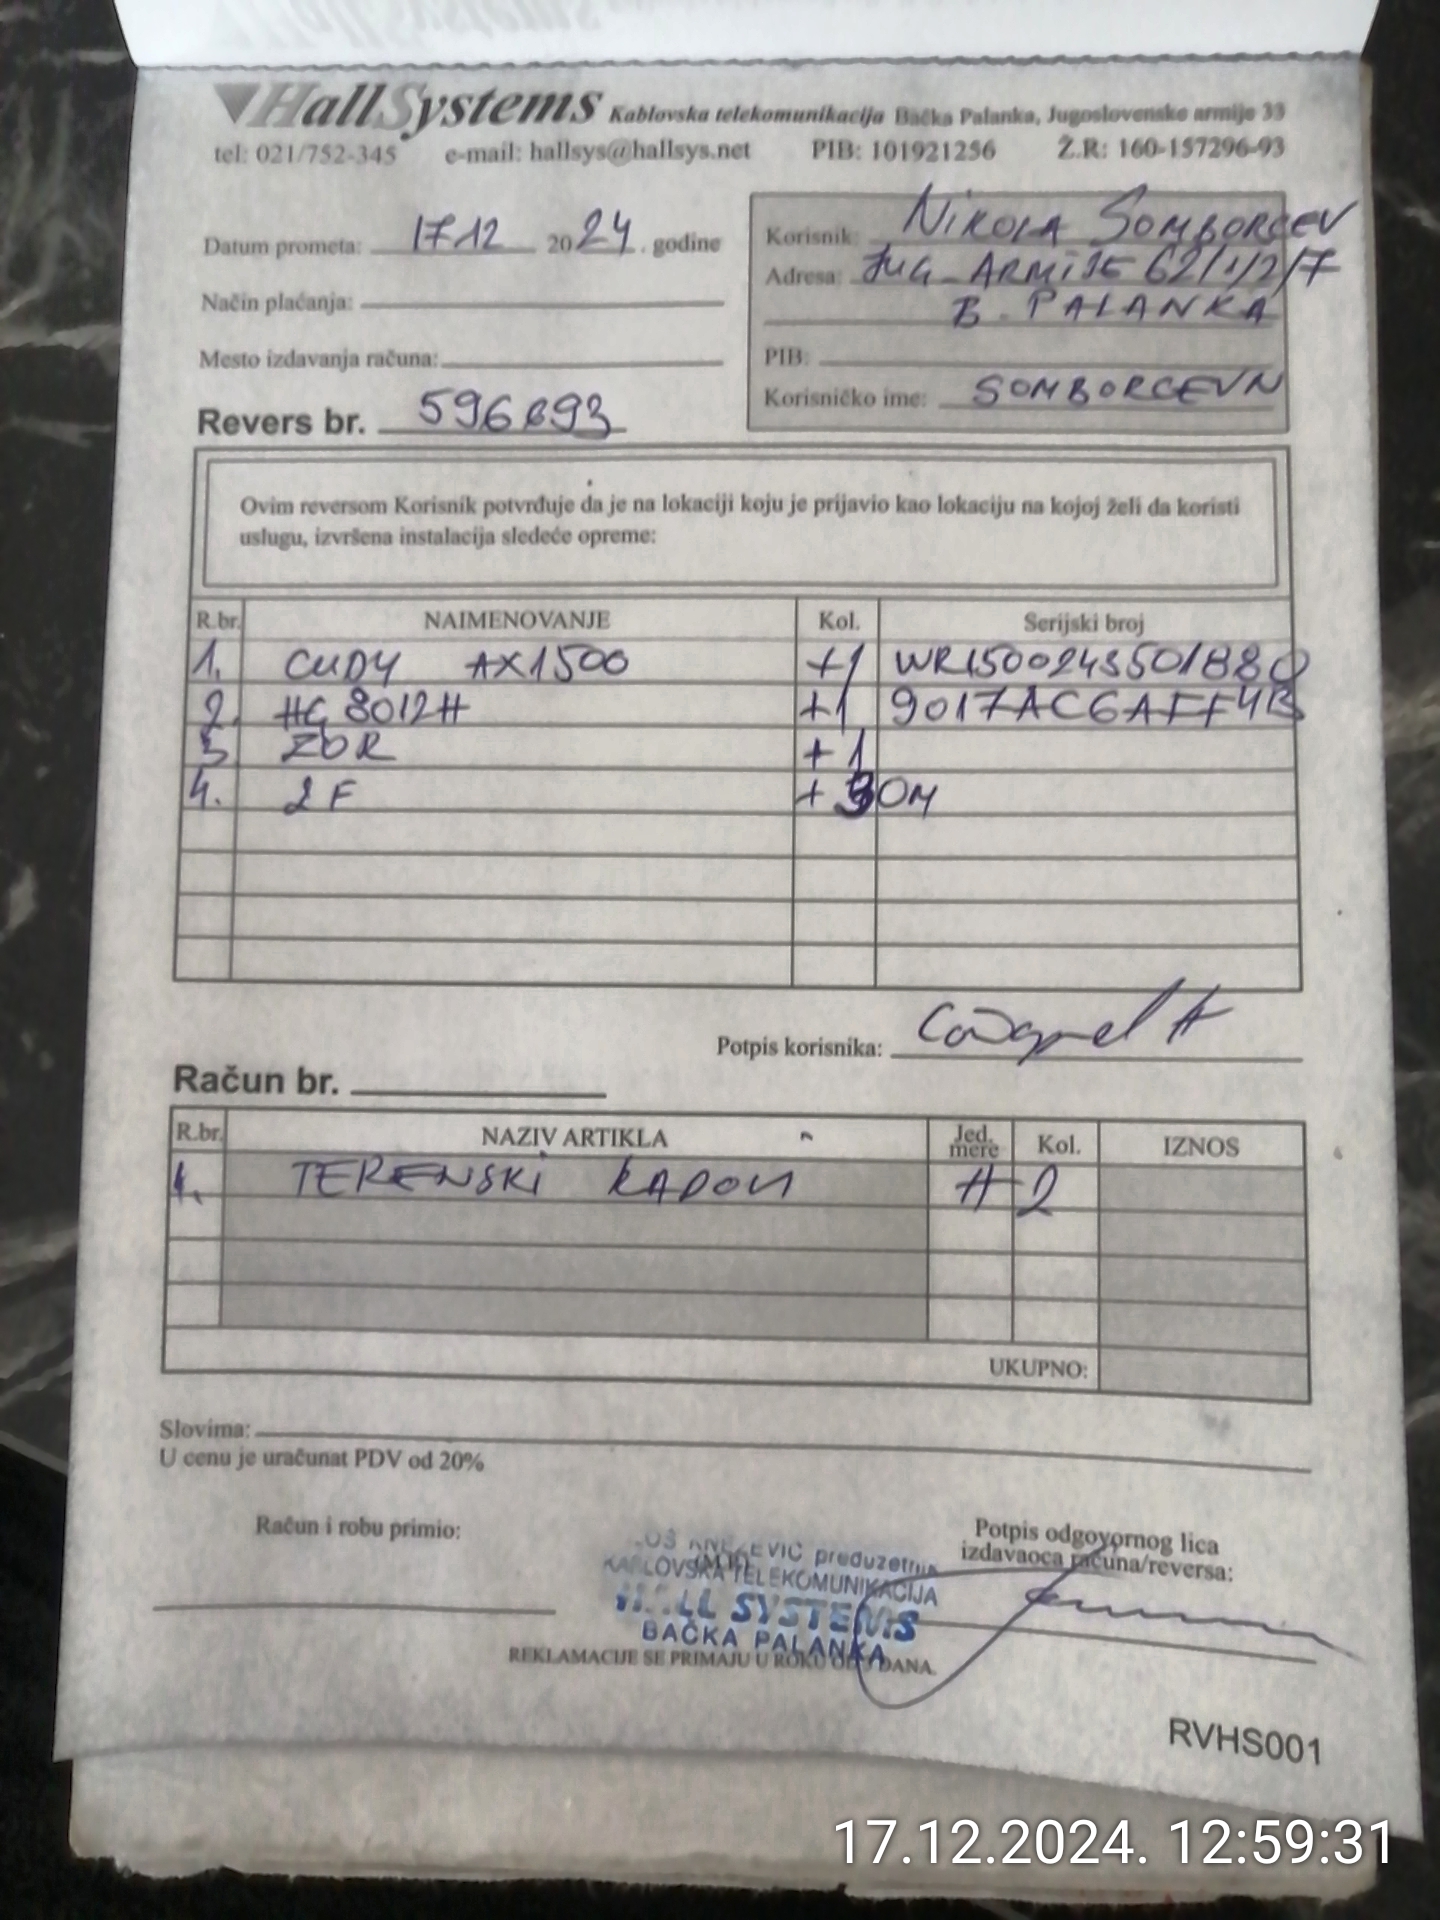 HallSystems Kablovska telekomunikacija Bačka Palanka, Jugoslovenske armije 33
tel: 021/752-345 e-mail: hallsys@hallsys.net PIB: 101921256 Ž.R: 160-157296-93
Datum prometa: 17.12 2024. godine
Način plaćanja:
Mesto izdavanja računa:
Revers br. 596693
Korisnik: NIKOLA SOMBORCEV
Adresa: JUG. ARMIJE 62/1/2/7
B. PALANKA
PIB:
Korisničko ime: SOMBORCEVN
Ovim reversom Korisnik potvrđuje da je na lokaciji koju je prijavio kao lokaciju na kojoj želi da koristi
uslugu, izvršena instalacija sledeće opreme:
R.br. NAIMENOVANJE Kol. Serijski broj
1. CUDY AX1500 +1 WR1500243501880
2. HG8012H +1 9017AC6AFF4B
3 ZOK +1
4. 2F + 30M
Potpis korisnika:
Račun br.
R.br. NAZIV ARTIKLA Jed. mere Kol. IZNOS
1. TERENSKI RADOVI H 2
UKUPNO:
Slovima:
U cenu je uračunat PDV od 20%
Račun i robu primio:
Potpis odgovornog lica
izdavaoca računa/reversa:
preduzetnik
KABLOVSKA TELEKOMUNIKACIJA
HALL SYSTEMS
BAČKA PALANKA
REKLAMACIJE SE PRIMAJU U ROKU OD DANA.
RVHS001
17.12.2024. 12:59:31